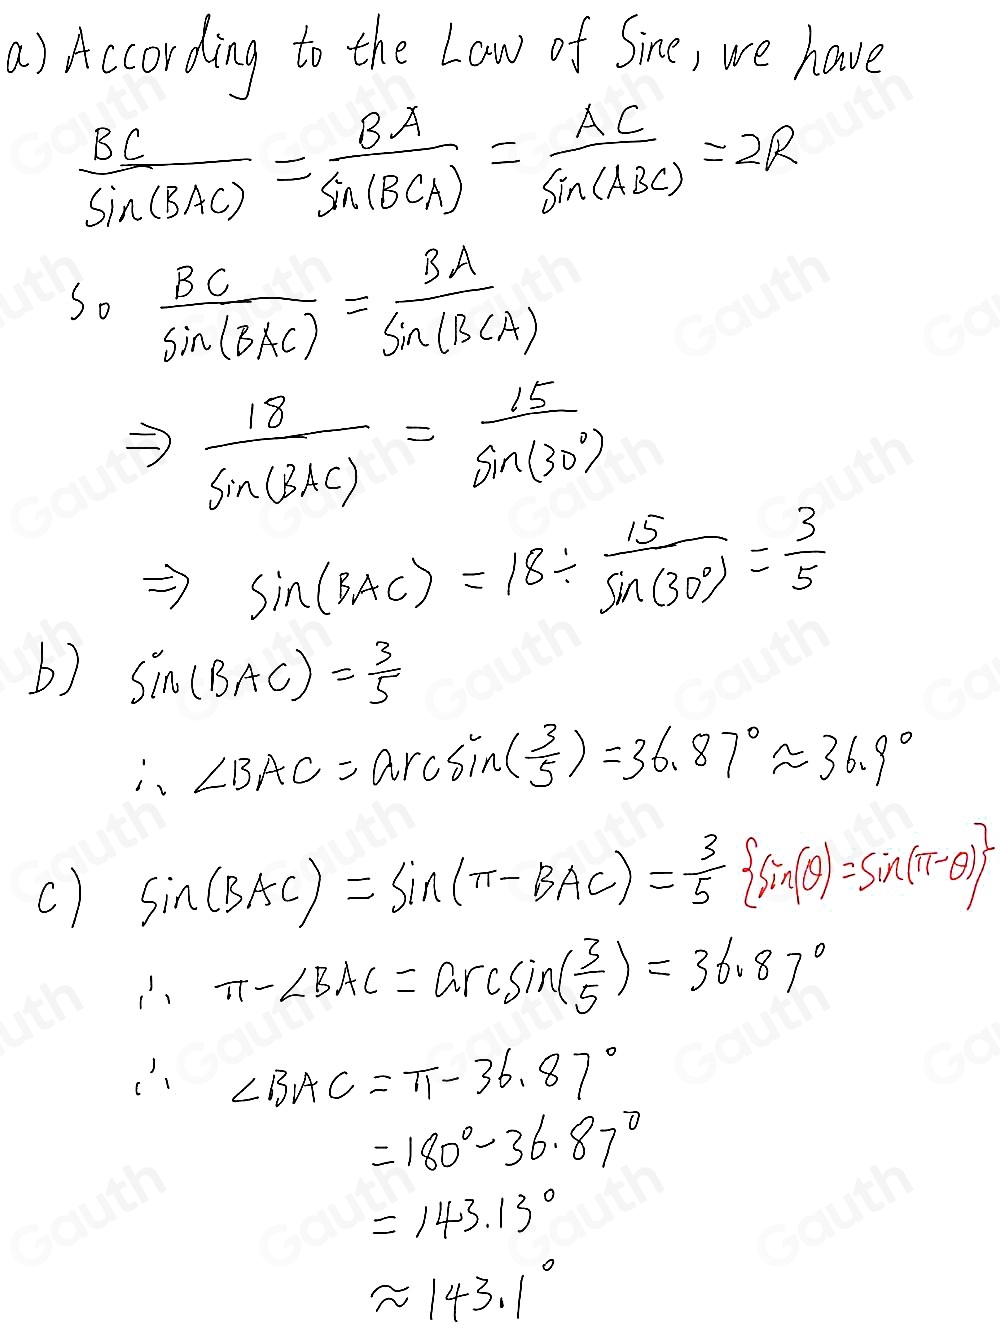 a) According to the Law of Sine, we have
BC/sin(BAC) = BA/sin(BCA) = AC/sin(ABC) = 2R
So BC/sin(BAC) = BA/sin(BCA)
⇒ 18/sin(BAC) = 15/sin(30°)
⇒ sin(BAC) = 18 ÷ 15/sin(30°) = 3/5
b) sin(BAC) = 3/5
∴ ∠BAC = arcsin(3/5) = 36.87° ≈ 36.9°
c) sin(BAC) = sin(π - BAC) = 3/5 {sin(θ) = sin(π-θ)}
∴ π - ∠BAC = arcsin(3/5) = 36.87°
∴ ∠BAC = π - 36.87°
= 180° - 36.87°
= 143.13°
≈ 143.1°